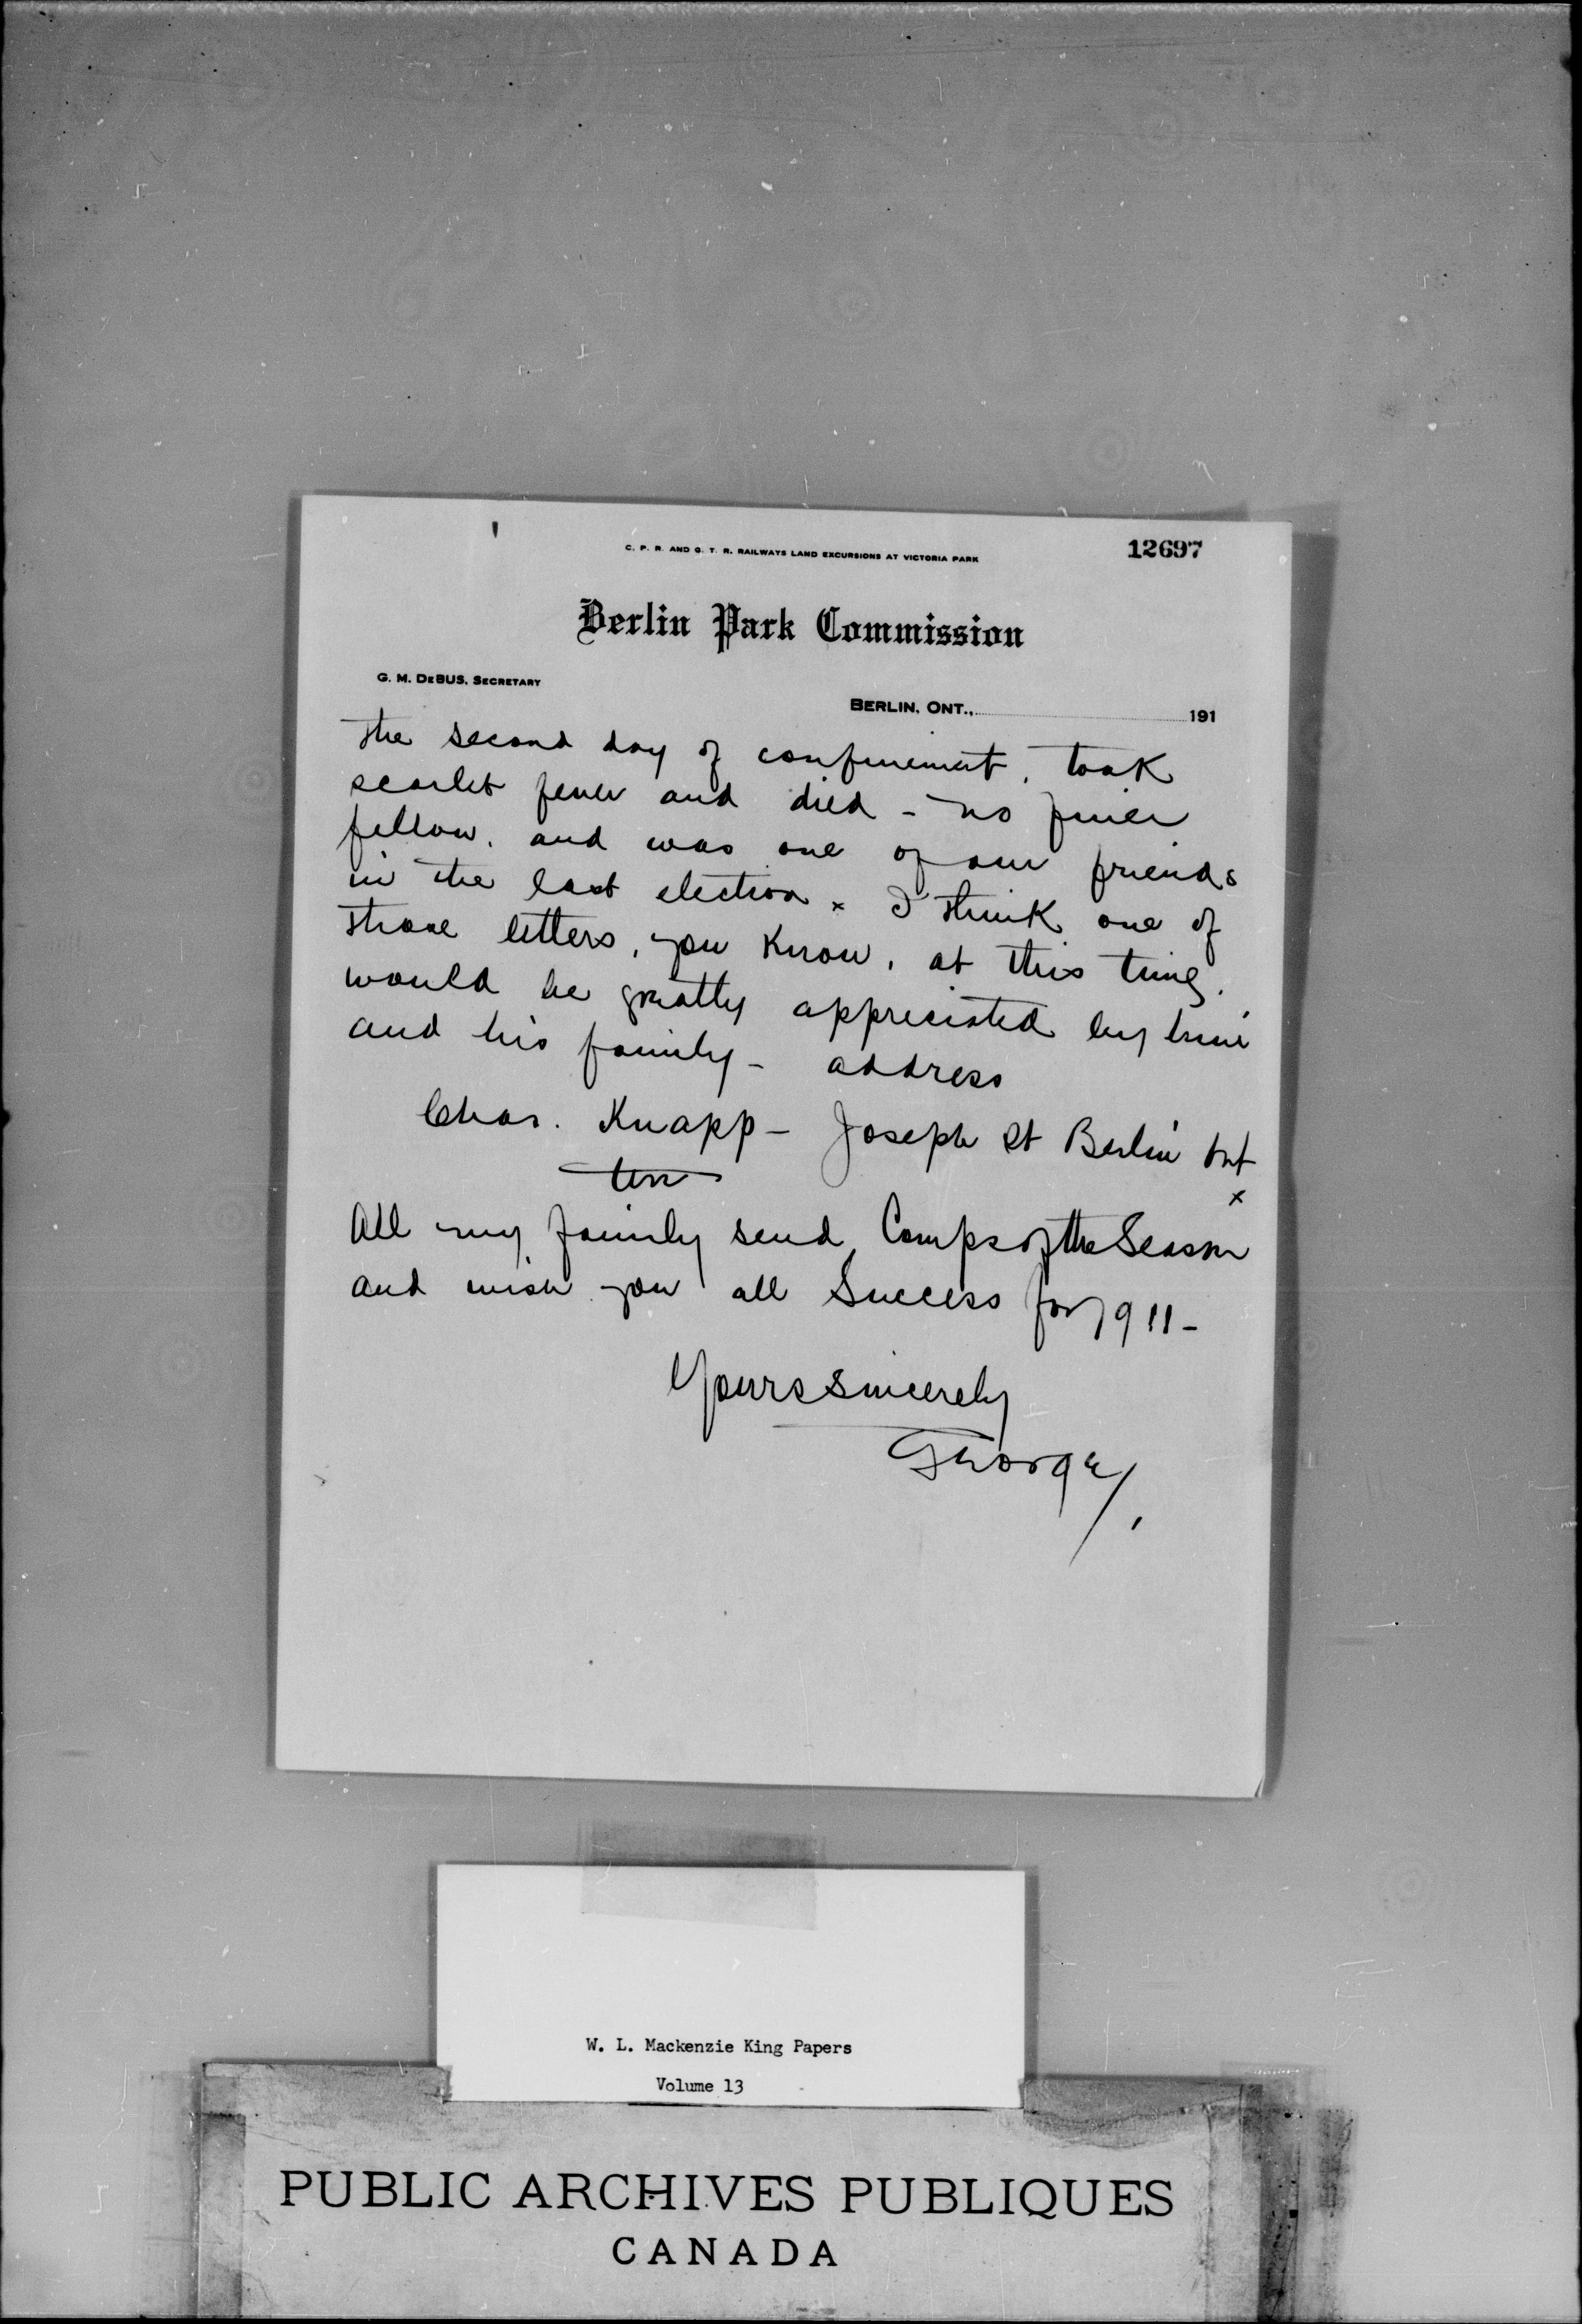 C. P. R. AND G. T. R. RAILWAYS LAND EXCURSIONS AT VICTORIA PARK
12697
Berlin Park Commission
G. M. DEBUS, SECRETARY
BERLIN, ONT., 191
The second day of confinement, took
scarlet fever and died - no finer
fellow, and was one of our friends
in the last election x I think one of
those letters, you know, at this time,
would be greatly appreciated by him
and his family - address
Chas. Knapp - Joseph St Berlin Ont
x
All my family send Comps of the Season
and wish you all Success for 1911 -
Yours sincerely
George
W. L. Mackenzie King Papers
Volume 13
PUBLIC ARCHIVES PUBLIQUES
CANADA